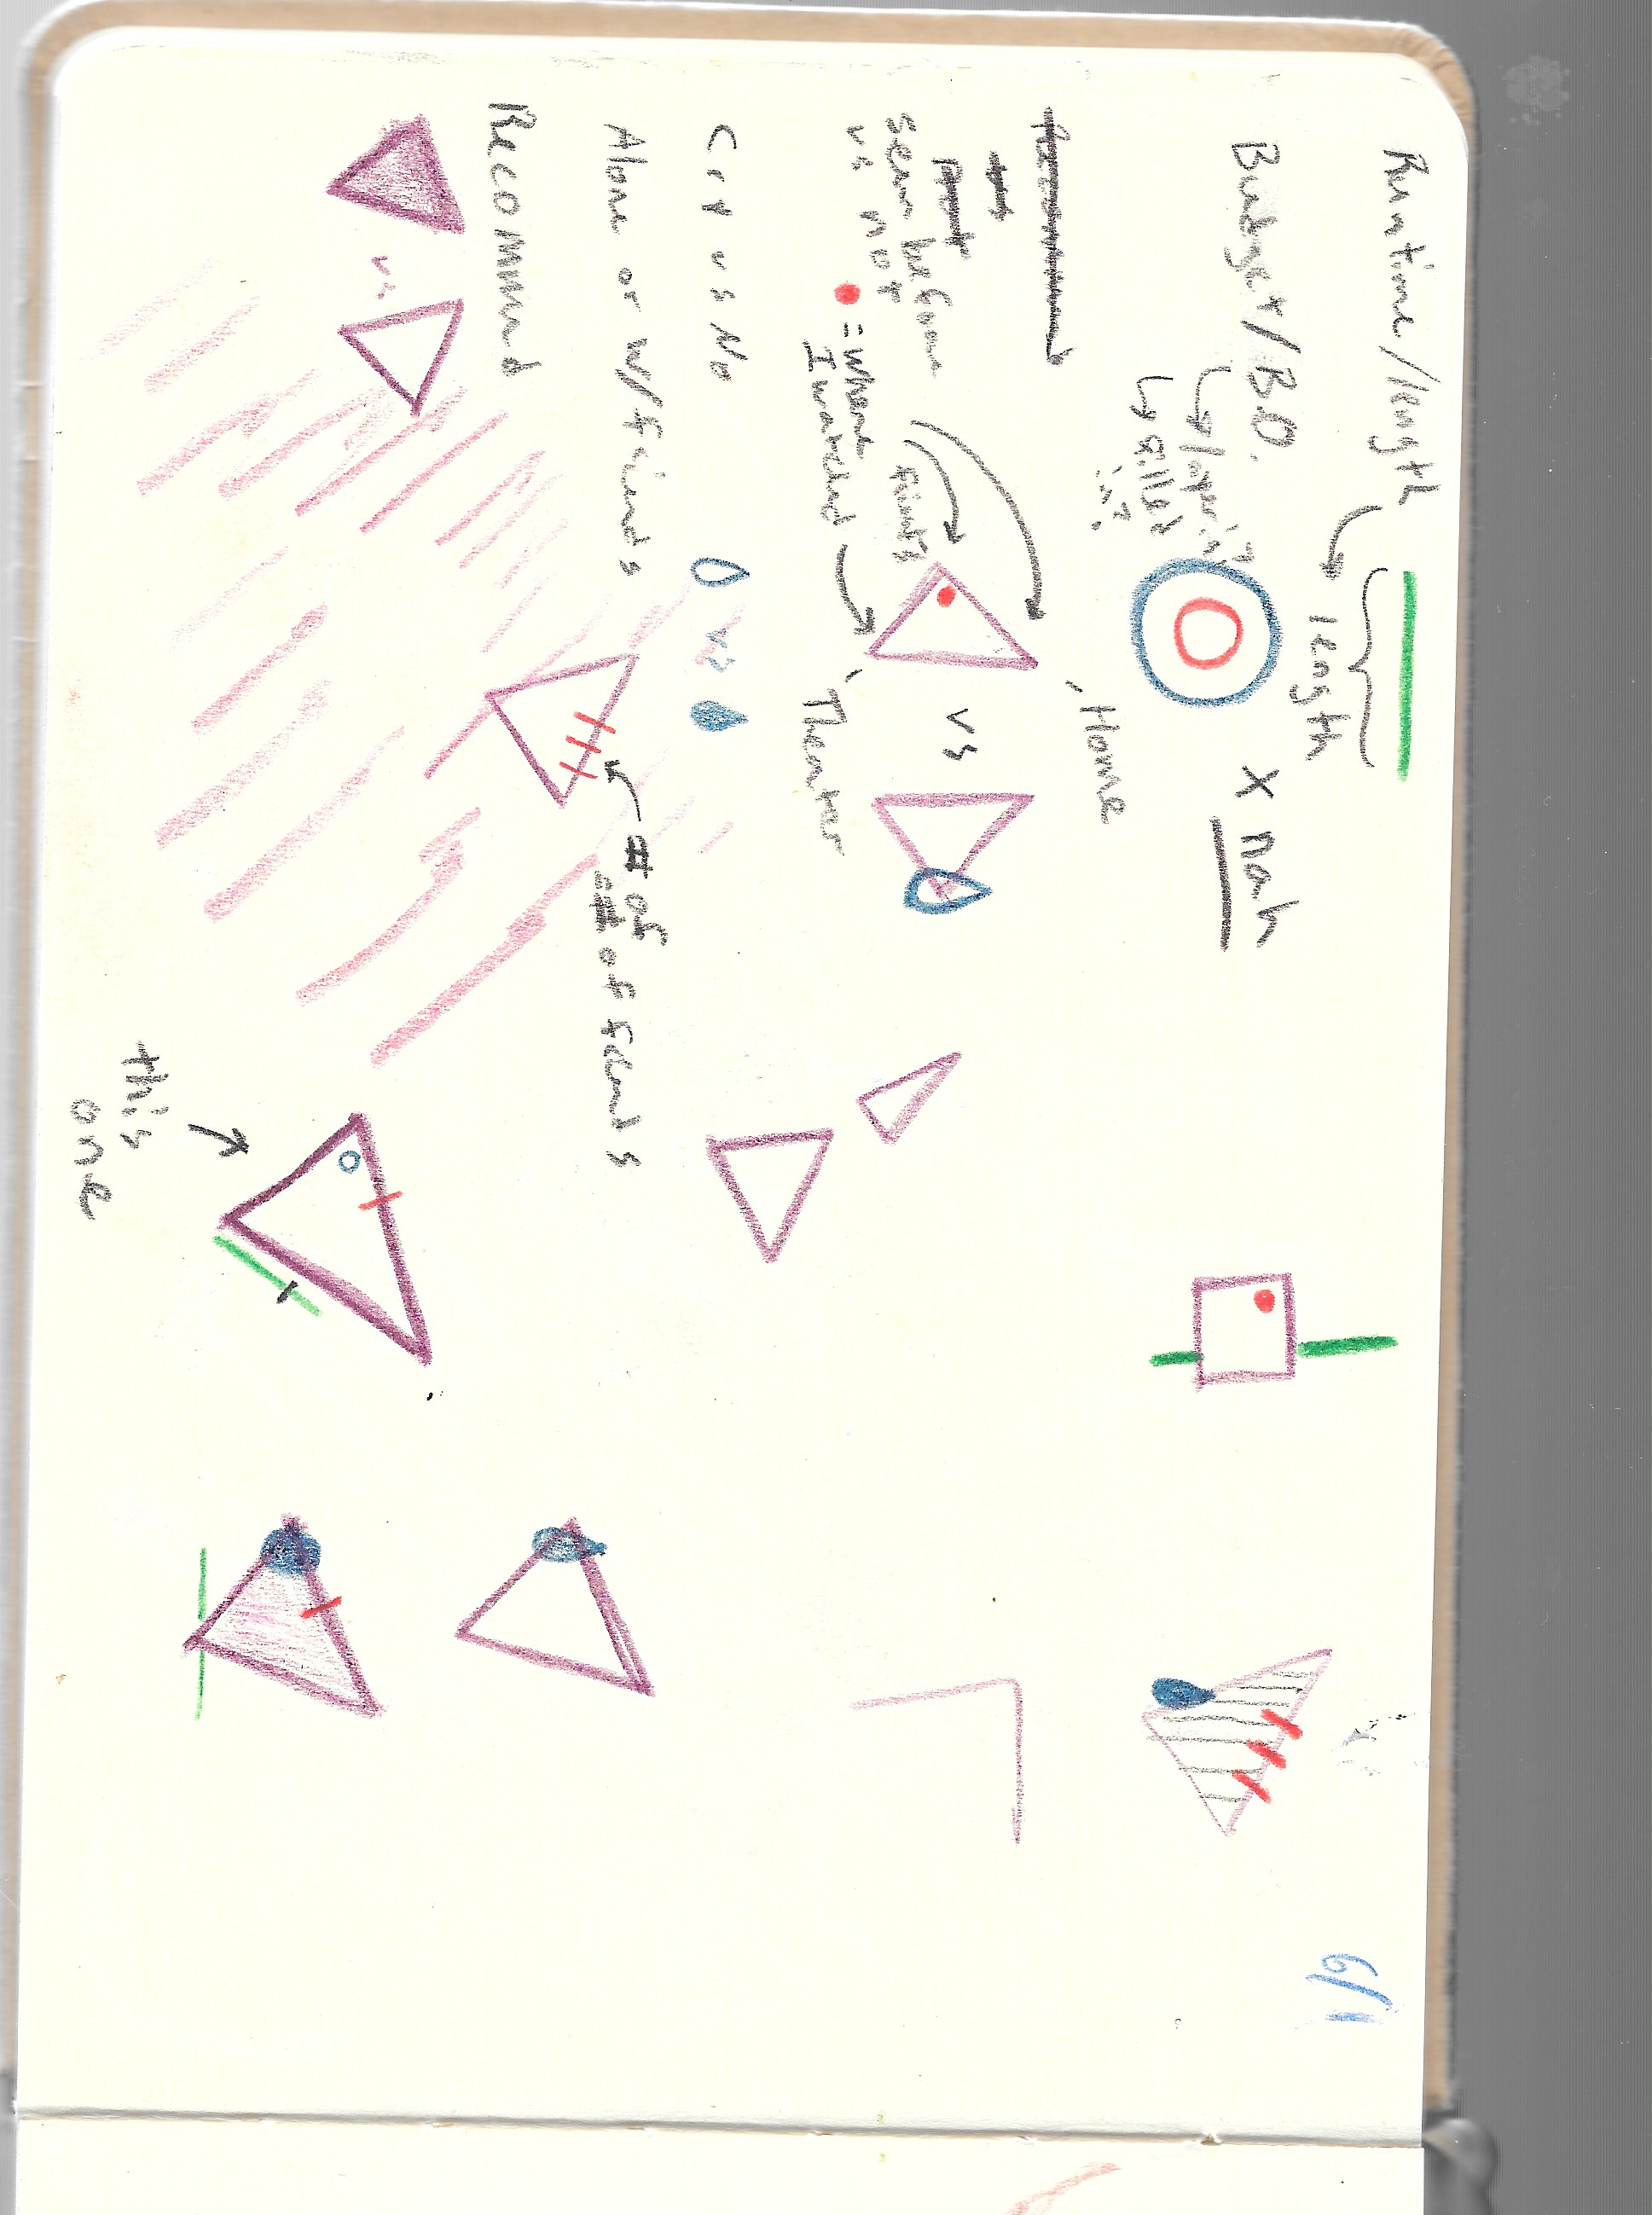 Runtime/length
length
Budget/B.O.
x nah
Home
Seen before
vs not
points
= where
I watched
vs
Theater
Cry vs No
vs
Alone or w/friends
# of
# of friends
Recommend
vs
this
one
6/1